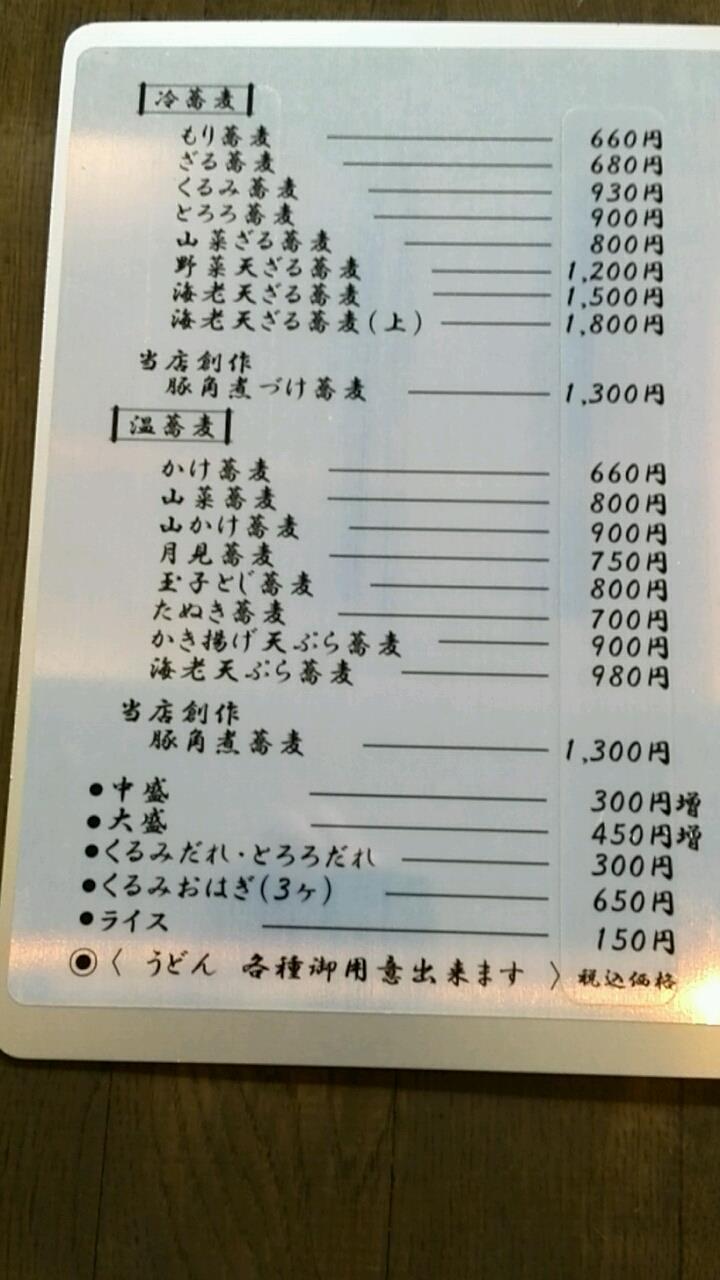 冷蕎麦
もり蕎麦 660円
ざる蕎麦 680円
くるみ蕎麦 930円
とろろ蕎麦 900円
山菜ざる蕎麦 800円
野菜天ざる蕎麦 1,200円
海老天ざる蕎麦 1,500円
海老天ざる蕎麦(上) 1,800円
当店創作
豚角煮づけ蕎麦 1,300円
温蕎麦
かけ蕎麦 660円
山菜蕎麦 800円
山かけ蕎麦 900円
月見蕎麦 750円
玉子とじ蕎麦 800円
たぬき蕎麦 700円
かき揚げ天ぷら蕎麦 900円
海老天ぷら蕎麦 980円
当店創作
豚角煮蕎麦 1,300円
●中盛 300円増
●大盛 450円増
●くるみだれ・とろろだれ 300円
●くるみおはぎ(3ヶ) 650円
●ライス 150円
◉〈 うどん 各種御用意出来ます 〉税込価格